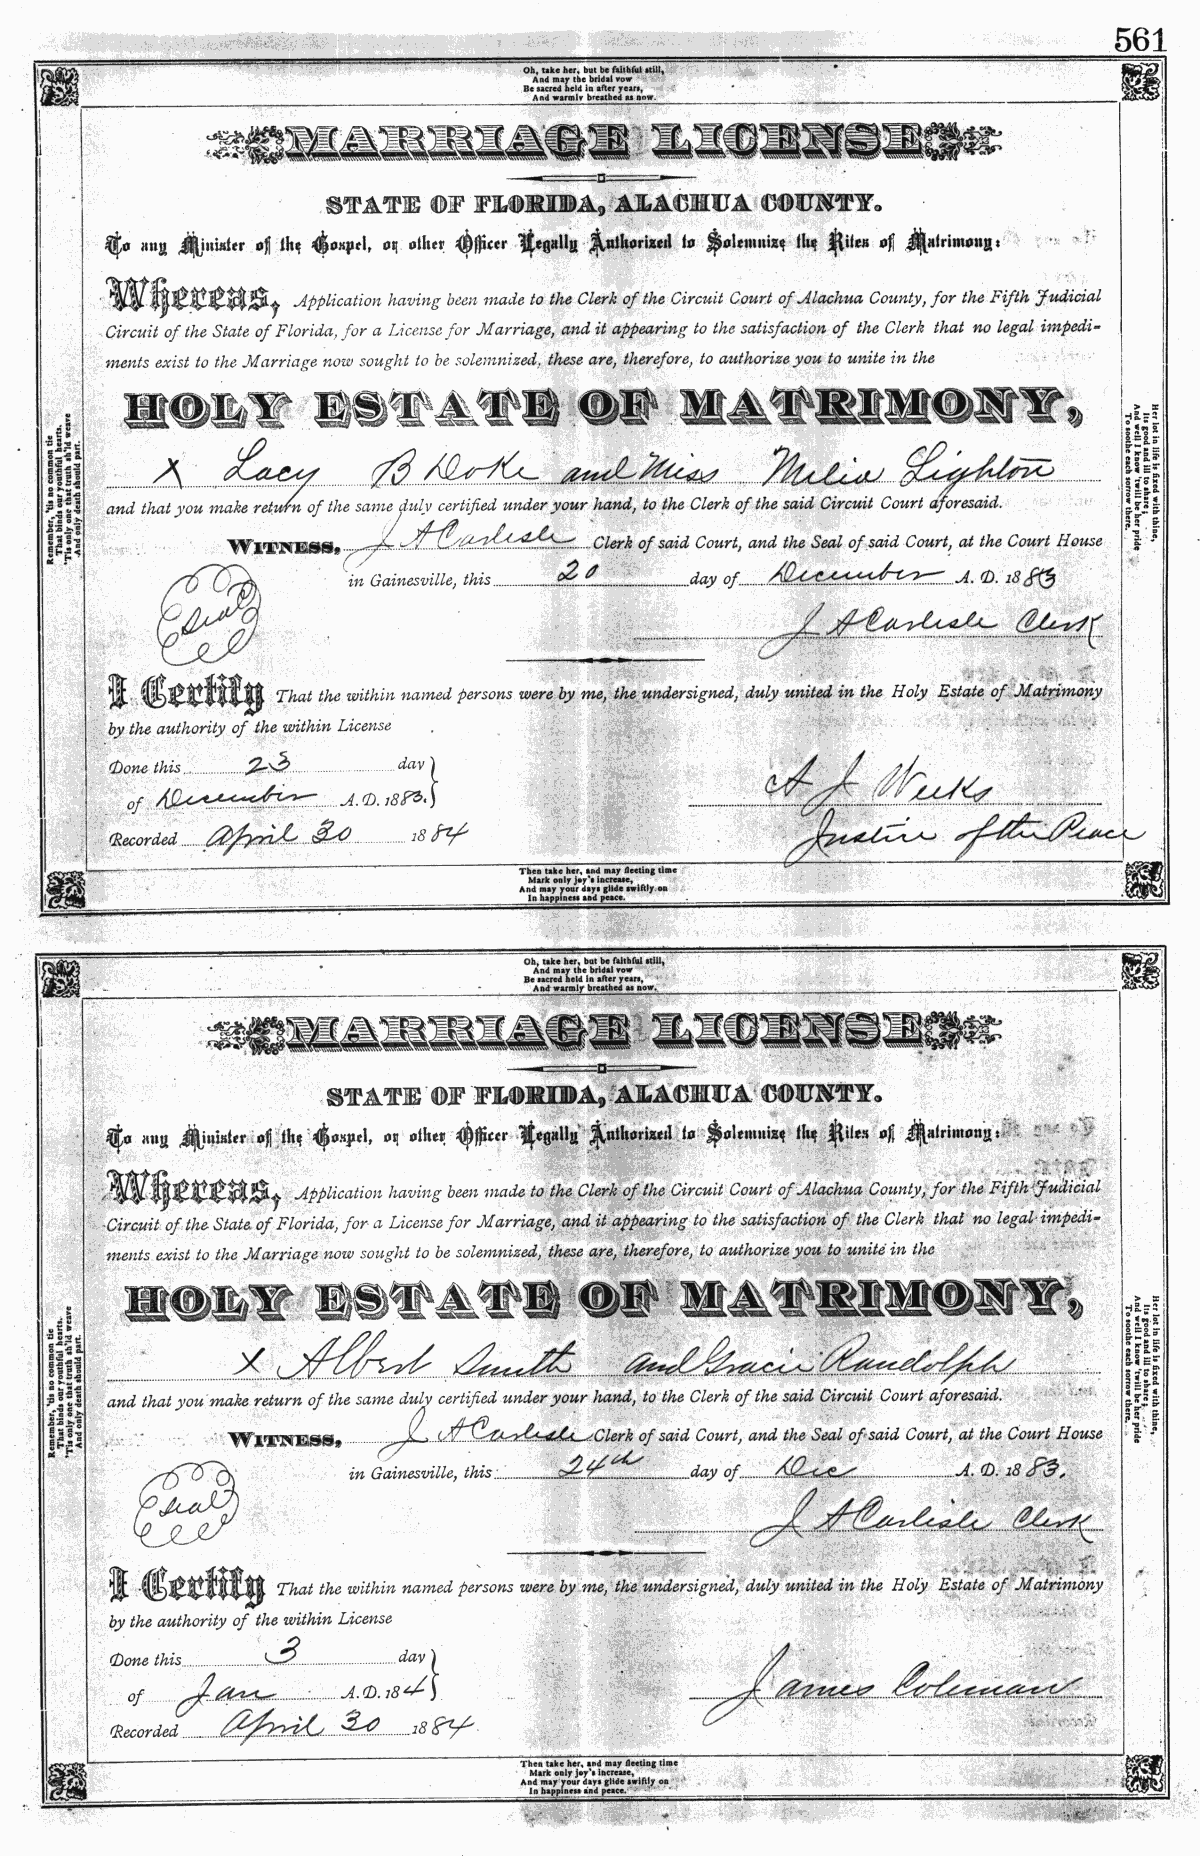 561
Oh, take her, but be faithful still,
And may the bridal vow
Be sacred held in after years,
And warmly breathed as now.
MARRIAGE LICENSE
STATE OF FLORIDA, ALACHUA COUNTY.
To any Minister of the Gospel, or other Officer Legally Authorized to Solemnize the Rites of Matrimony:
Whereas, Application having been made to the Clerk of the Circuit Court of Alachua County, for the Fifth Judicial
Circuit of the State of Florida, for a License for Marriage, and it appearing to the satisfaction of the Clerk that no legal impedi-
ments exist to the Marriage now sought to be solemnized, these are, therefore, to authorize you to unite in the
HOLY ESTATE OF MATRIMONY,
X Lacy B Doke and Miss Melia Lighton
and that you make return of the same duly certified under your hand, to the Clerk of the said Circuit Court aforesaid.
WITNESS, J A Carlisle Clerk of said Court, and the Seal of said Court, at the Court House
in Gainesville, this 20 day of December A. D. 1883
Seal
J A Carlisle Clerk
I Certify That the within named persons were by me, the undersigned, duly united in the Holy Estate of Matrimony
by the authority of the within License
Done this 23 day
of December A.D. 1883.
A J Weeks
Recorded April 30 1884
Justice of the Peace
Remember, 'tis no common tie
That binds our youthful hearts,
'Tis only one that truth sh'ld weave
And only death should part.
Her lot in life is fixed with thine,
Its good and ill to share;
And well I know 'twill be her pride
To soothe each sorrow there.
Then take her, and may fleeting time
Mark only joy's increase,
And may your days glide swiftly on
In happiness and peace.
Oh, take her, but be faithful still,
And may the bridal vow
Be sacred held in after years,
And warmly breathed as now.
MARRIAGE LICENSE
STATE OF FLORIDA, ALACHUA COUNTY.
To any Minister of the Gospel, or other Officer Legally Authorized to Solemnize the Rites of Matrimony:
Whereas, Application having been made to the Clerk of the Circuit Court of Alachua County, for the Fifth Judicial
Circuit of the State of Florida, for a License for Marriage, and it appearing to the satisfaction of the Clerk that no legal impedi-
ments exist to the Marriage now sought to be solemnized, these are, therefore, to authorize you to unite in the
HOLY ESTATE OF MATRIMONY,
X Albert Smith and Gracie Randolph
and that you make return of the same duly certified under your hand, to the Clerk of the said Circuit Court aforesaid.
WITNESS, J A Carlisle Clerk of said Court, and the Seal of said Court, at the Court House
in Gainesville, this 24th day of Dec A. D. 1883.
Seal
J A Carlisle Clerk
I Certify That the within named persons were by me, the undersigned, duly united in the Holy Estate of Matrimony
by the authority of the within License
Done this 3 day
of Jan A.D. 184
James Coleman
Recorded April 30 1884.
Remember, 'tis no common tie
That binds our youthful hearts,
'Tis only one that truth sh'ld weave
And only death should part.
Her lot in life is fixed with thine,
Its good and ill to share;
And well I know 'twill be her pride
To soothe each sorrow there.
Then take her, and may fleeting time
Mark only joy's increase,
And may your days glide swiftly on
In happiness and peace.